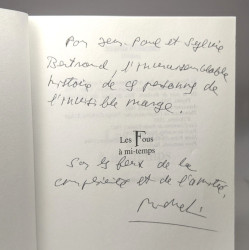 Pour Jean-Paul et Sylvie
Bertrand, l'invraisemblable
histoire de ce personnage de
l'invisible marge.
Les Fous
à mi-temps
Sous les feux de la
complicité et de l'amitié,